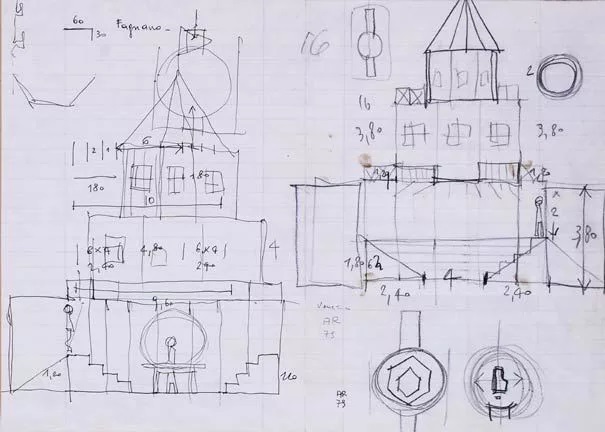 60
30
Fagnano
16
2
16
3,80
3,80
2 1
6
180
1,80
10
1,20
1,20
2
3,80
4
6 x 4
4,80
6 x 4
2,40
240
1,80
4
2,40
2,40
9,60
1,20
AR
73
AR
73